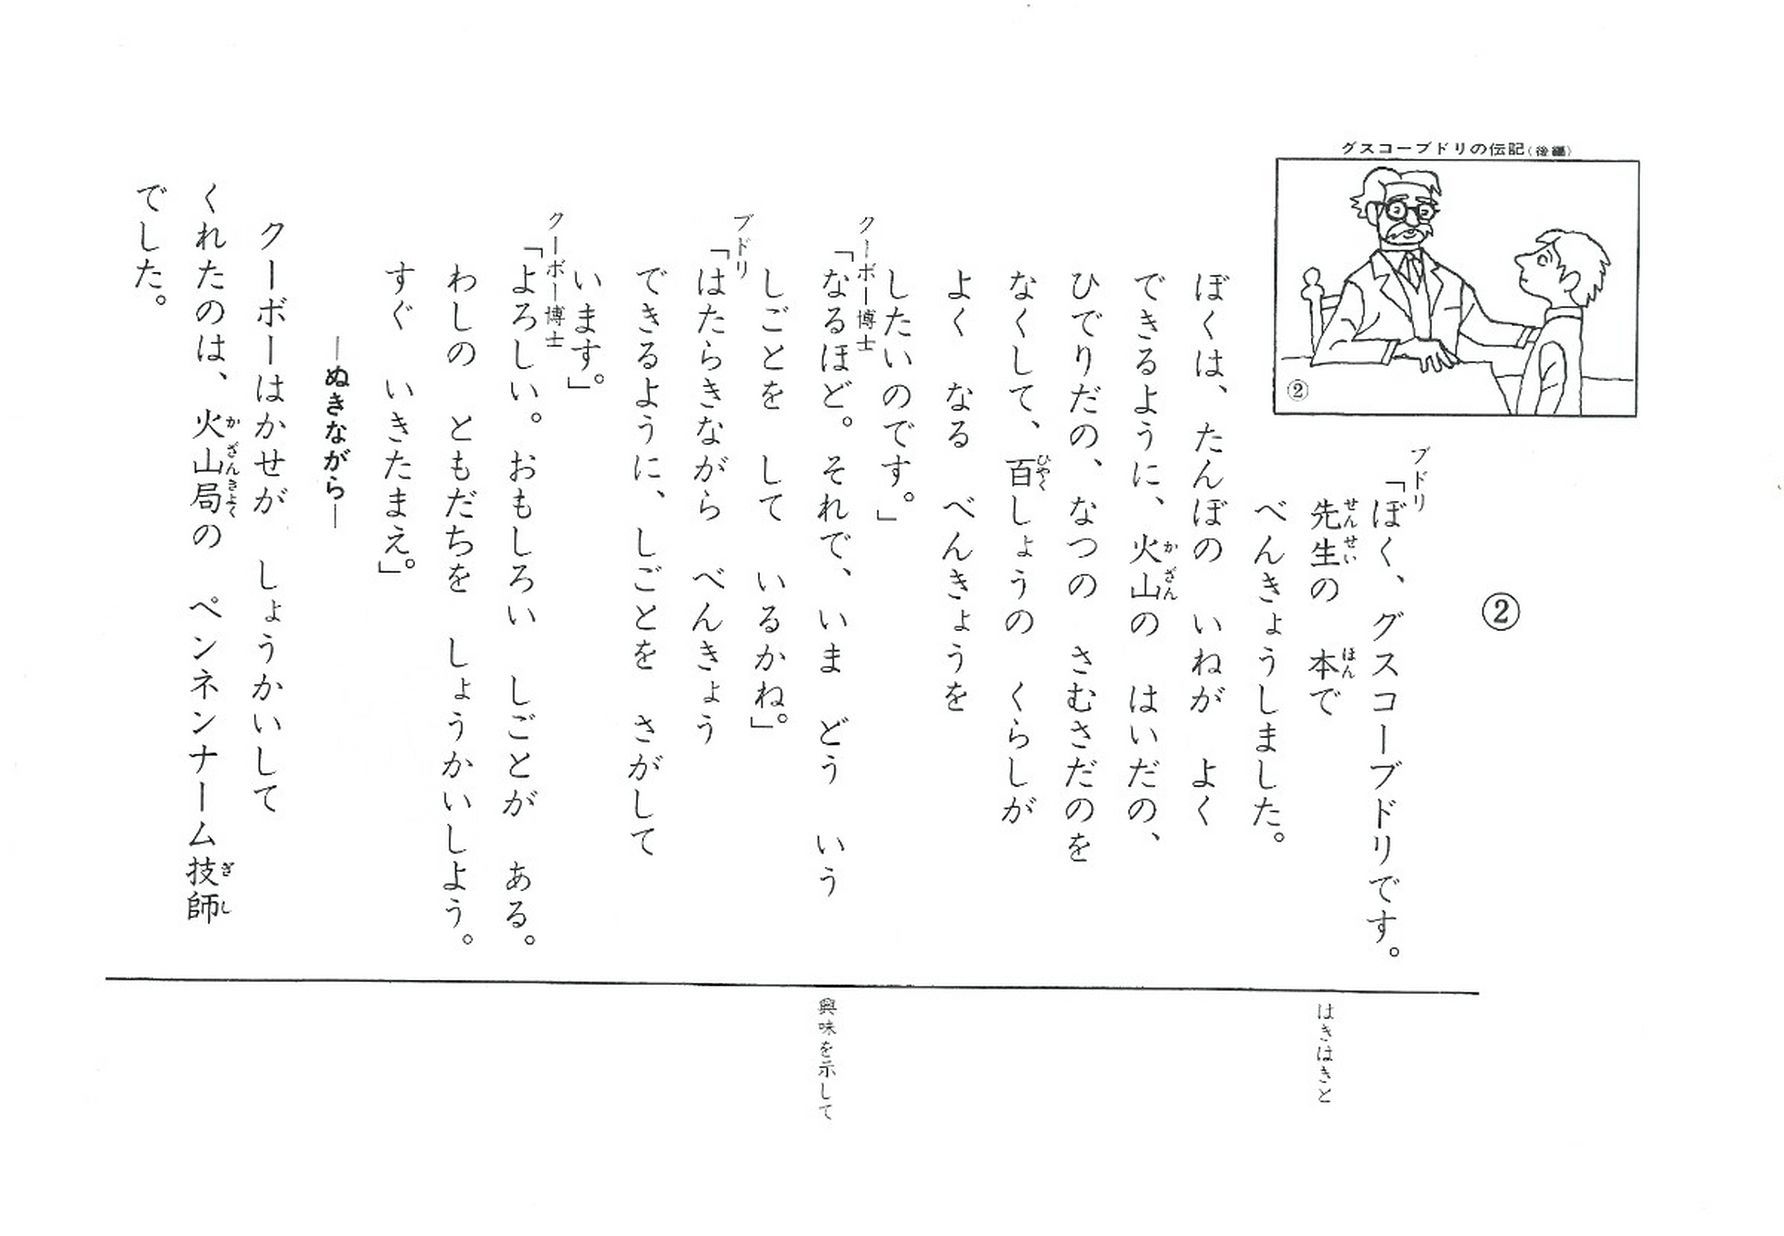 グスコーブドリの伝記(後編)
②
②
ブドリ
「ぼく、グスコーブドリです。
先生の　本で
せんせい
ほん
べんきょうしました。
ぼくは、たんぼの　いねが　よく
できるように、火山の　はいだの、
かざん
ひでりだの、なつの　さむさだのを
なくして、百しょうの　くらしが
ひやく
よく　なる　べんきょうを
したいのです。」
クーボー博士
「なるほど。それで、いま　どう　いう
しごとを　して　いるかね。」
ブドリ
「はたらきながら　べんきょう
できるように、しごとを　さがして
います。」
クーボー博士
「よろしい。おもしろい　しごとが　ある。
わしの　ともだちを　しょうかいしよう。
すぐ　いきたまえ。」
―ぬきながら―
クーボーはかせが　しょうかいして
くれたのは、火山局の　ペンネンナーム技師
かざんきよく
ぎし
でした。
はきはきと
興味を示して